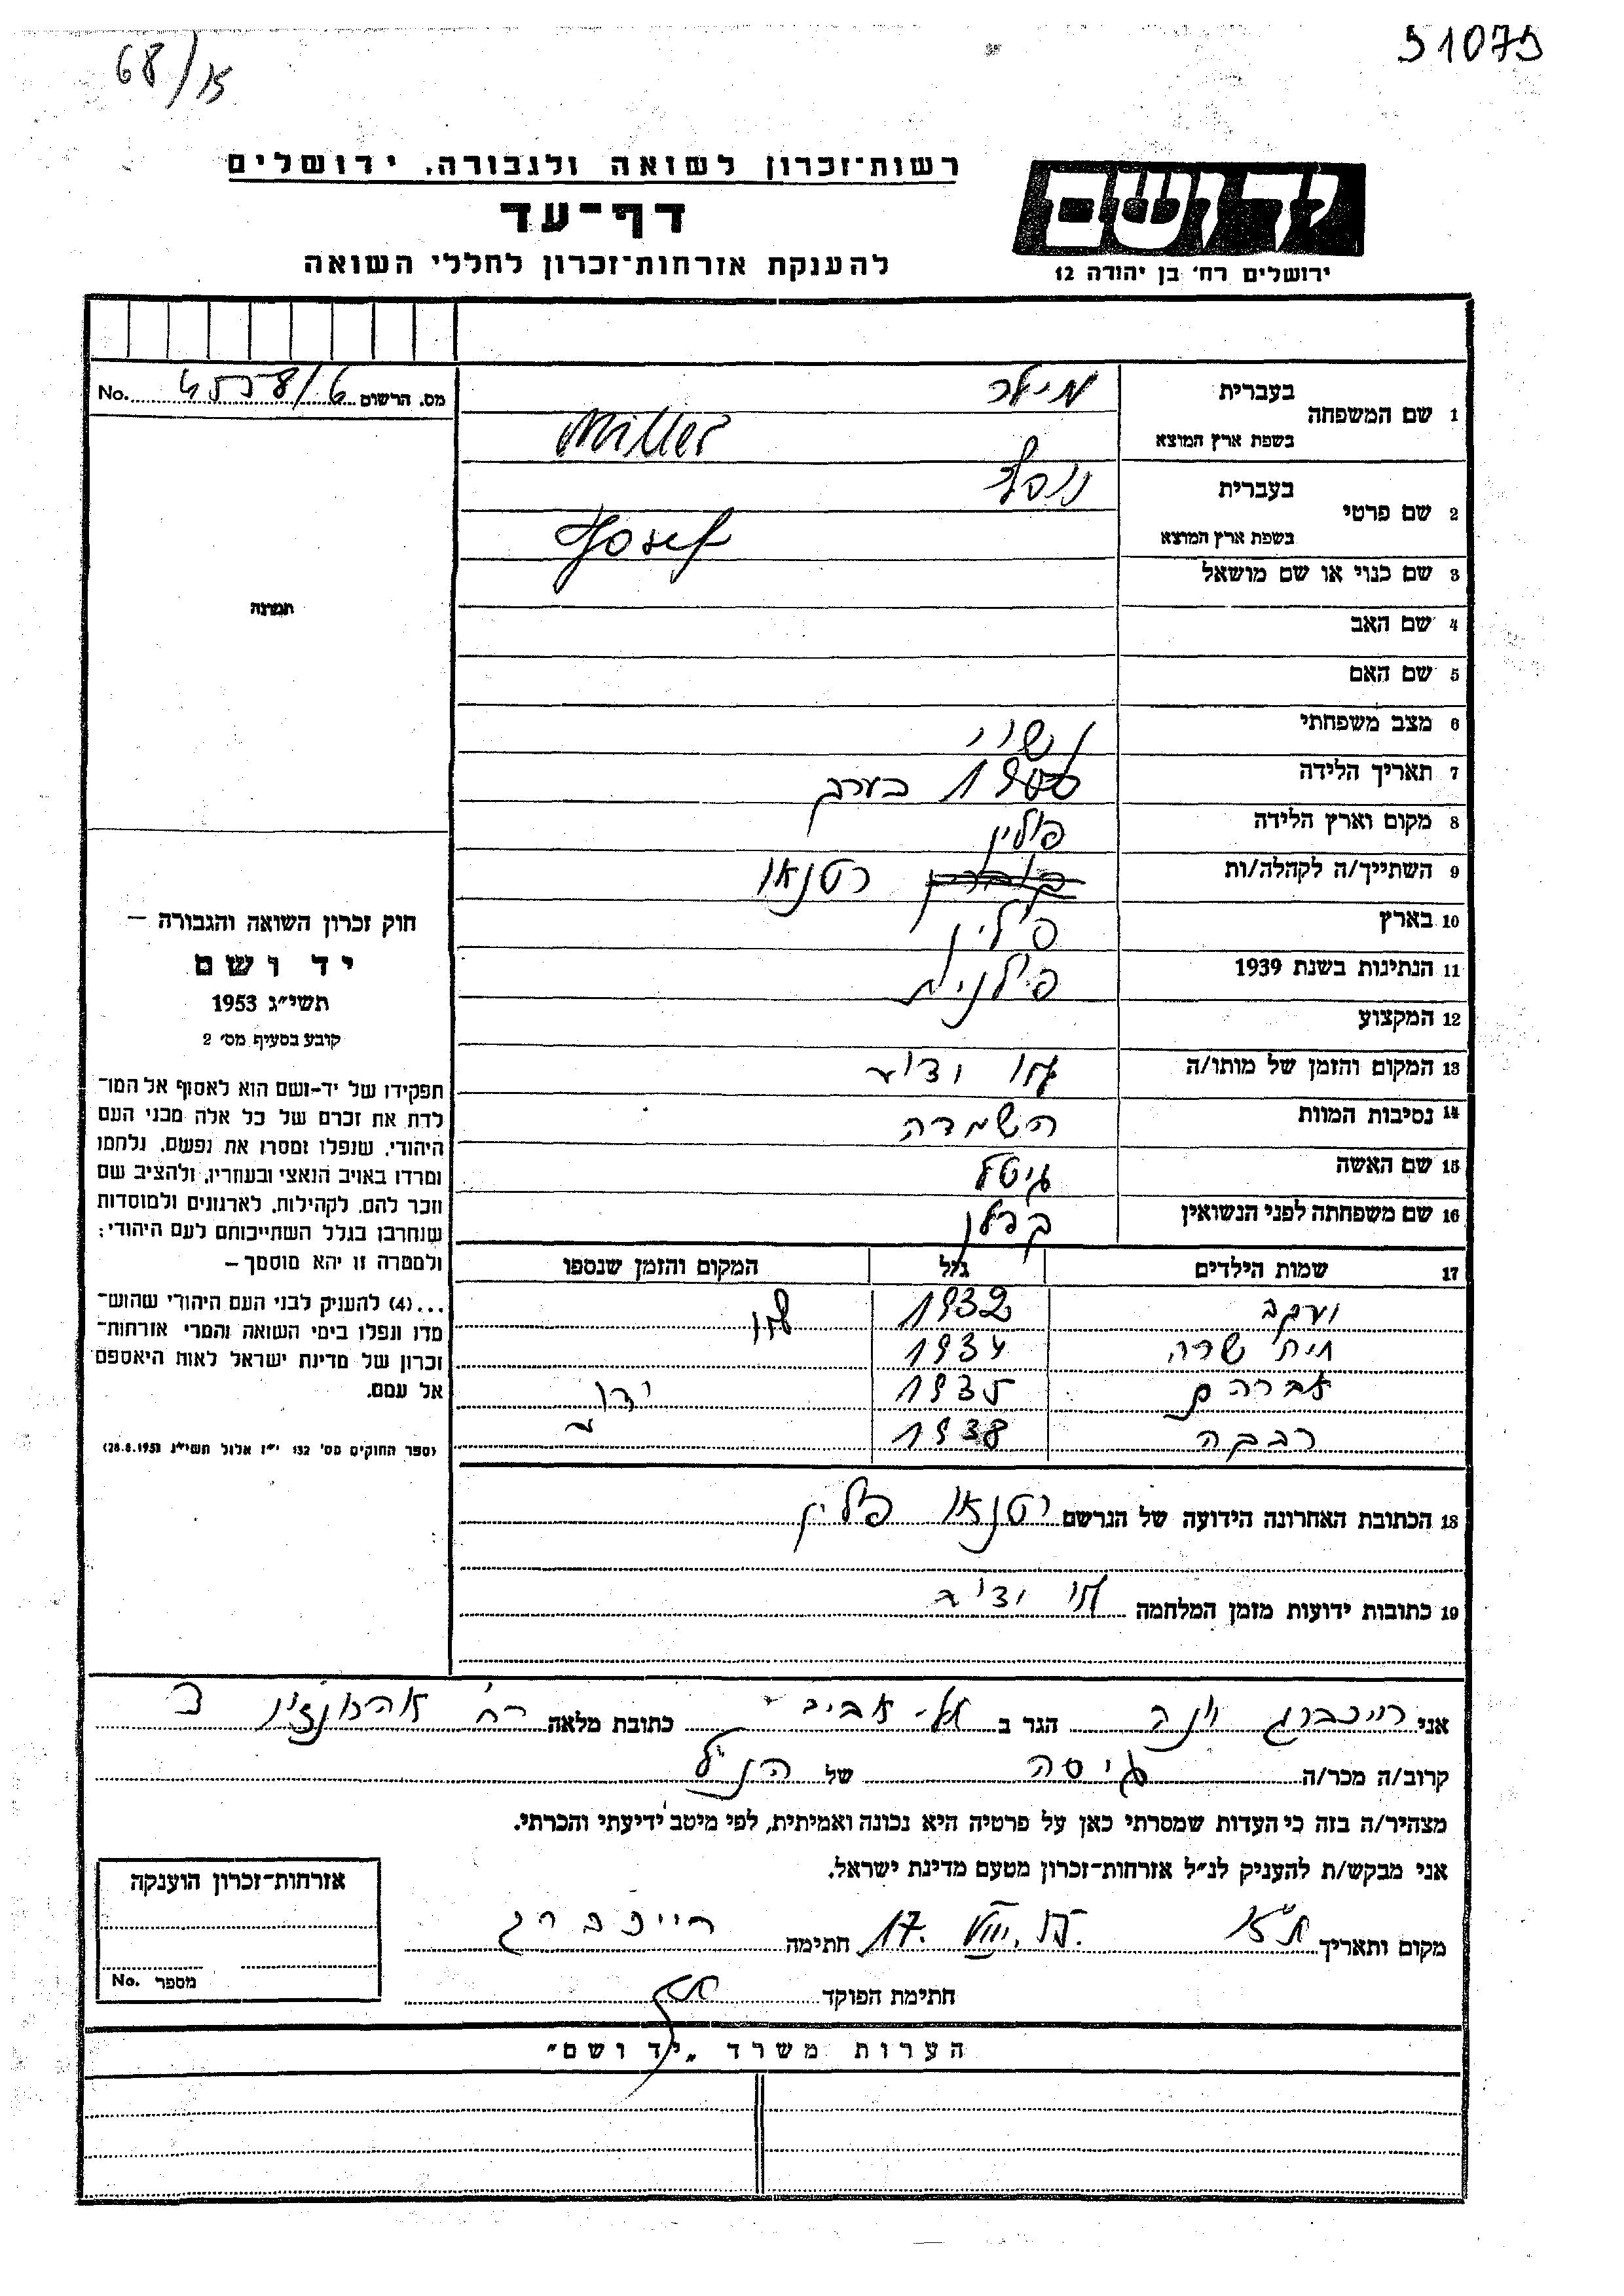 68/15
51079
רשות־זכרון לשואה ולגבורה. ירושלים
דף־עד
להענקת אזרחות־זכרון לחללי השואה
יד ושם
ירושלים רח' בן יהודה 12
No. 4558/6 מס. הרשום
תמונה
חוק זכרון השואה והגבורה —
יד ושם
תשי״ג 1953
קובע בסעיף מס' 2
תפקידו של יד-ושם הוא לאסוף אל המו־
לדת את זכרם של כל אלה מבני העם
היהודי, שנפלו ומסרו את נפשם, נלחמו
ומרדו באויב הנאצי ובעוזריו, ולהציב שם
וזכר להם, לקהילות, לארגונים ולמוסדות
שנחרבו בגלל השתייכותם לעם היהודי;
ולמטרה זו יהא מוסמך —
...(4) להעניק לבני העם היהודי שהוש־
מדו ונפלו בימי השואה והמרי אזרחות־
זכרון של מדינת ישראל לאות היאספם
אל עמם.
(ספר החוקים מס' 132 י״ז אלול תשי״ג 28.8.1953)
1 שם המשפחה בעברית מילר
בשפת ארץ המוצא Miller
2 שם פרטי בעברית יוסף
בשפת ארץ המוצא Josef
3 שם כנוי או שם מושאל
4 שם האב
5 שם האם
6 מצב משפחתי נשוי
7 תאריך הלידה 1900 בערך
8 מקום וארץ הלידה פולין
9 השתייך/ה לקהלה/ות רטנאו
10 בארץ פולין
11 הנתינות בשנת 1939 פולנית
12 המקצוע
13 המקום והזמן של מותו/ה לא ידוע
14 נסיבות המוות השמדה
15 שם האשה גיטל
16 שם משפחתה לפני הנשואין
17 שמות הילדים גיל המקום והזמן שנספו
יעקב 1932 לא
חיה שרה 1934
אברהם 1935 ידוע
רבקה 1938
18 הכתובת האחרונה הידועה של הנרשם רטנאו פולין
19 כתובות ידועות מזמן המלחמה לא ידוע
אני רייכברג חנה הגר ב תל-אביב כתובת מלאה רח'
קרוב/ה מכר/ה גיסה של הנ״ל
מצהיר/ה בזה כי העדות שמסרתי כאן על פרטיה היא נכונה ואמיתית, לפי מיטב ידיעתי והכרתי.
אני מבקש/ת להעניק לנ״ל אזרחות־זכרון מטעם מדינת ישראל.
מקום ותאריך ת״א 17. VIII. חתימה רייכברג
חתימת הפוקד
אזרחות־זכרון הוענקה
מספר No.
הערות משרד „יד ושם״